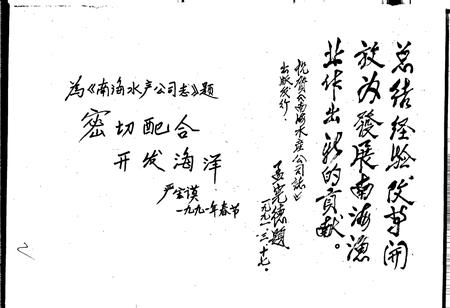 为《南海水产公司志》题
密切配合
开发海洋
一九九一年春节
总结经验改革开
放为發展南海漁
业作出新的貢献。
祝贺《南海水產公司誌》
出版发行。
宪德题
一九九一.三.十七.